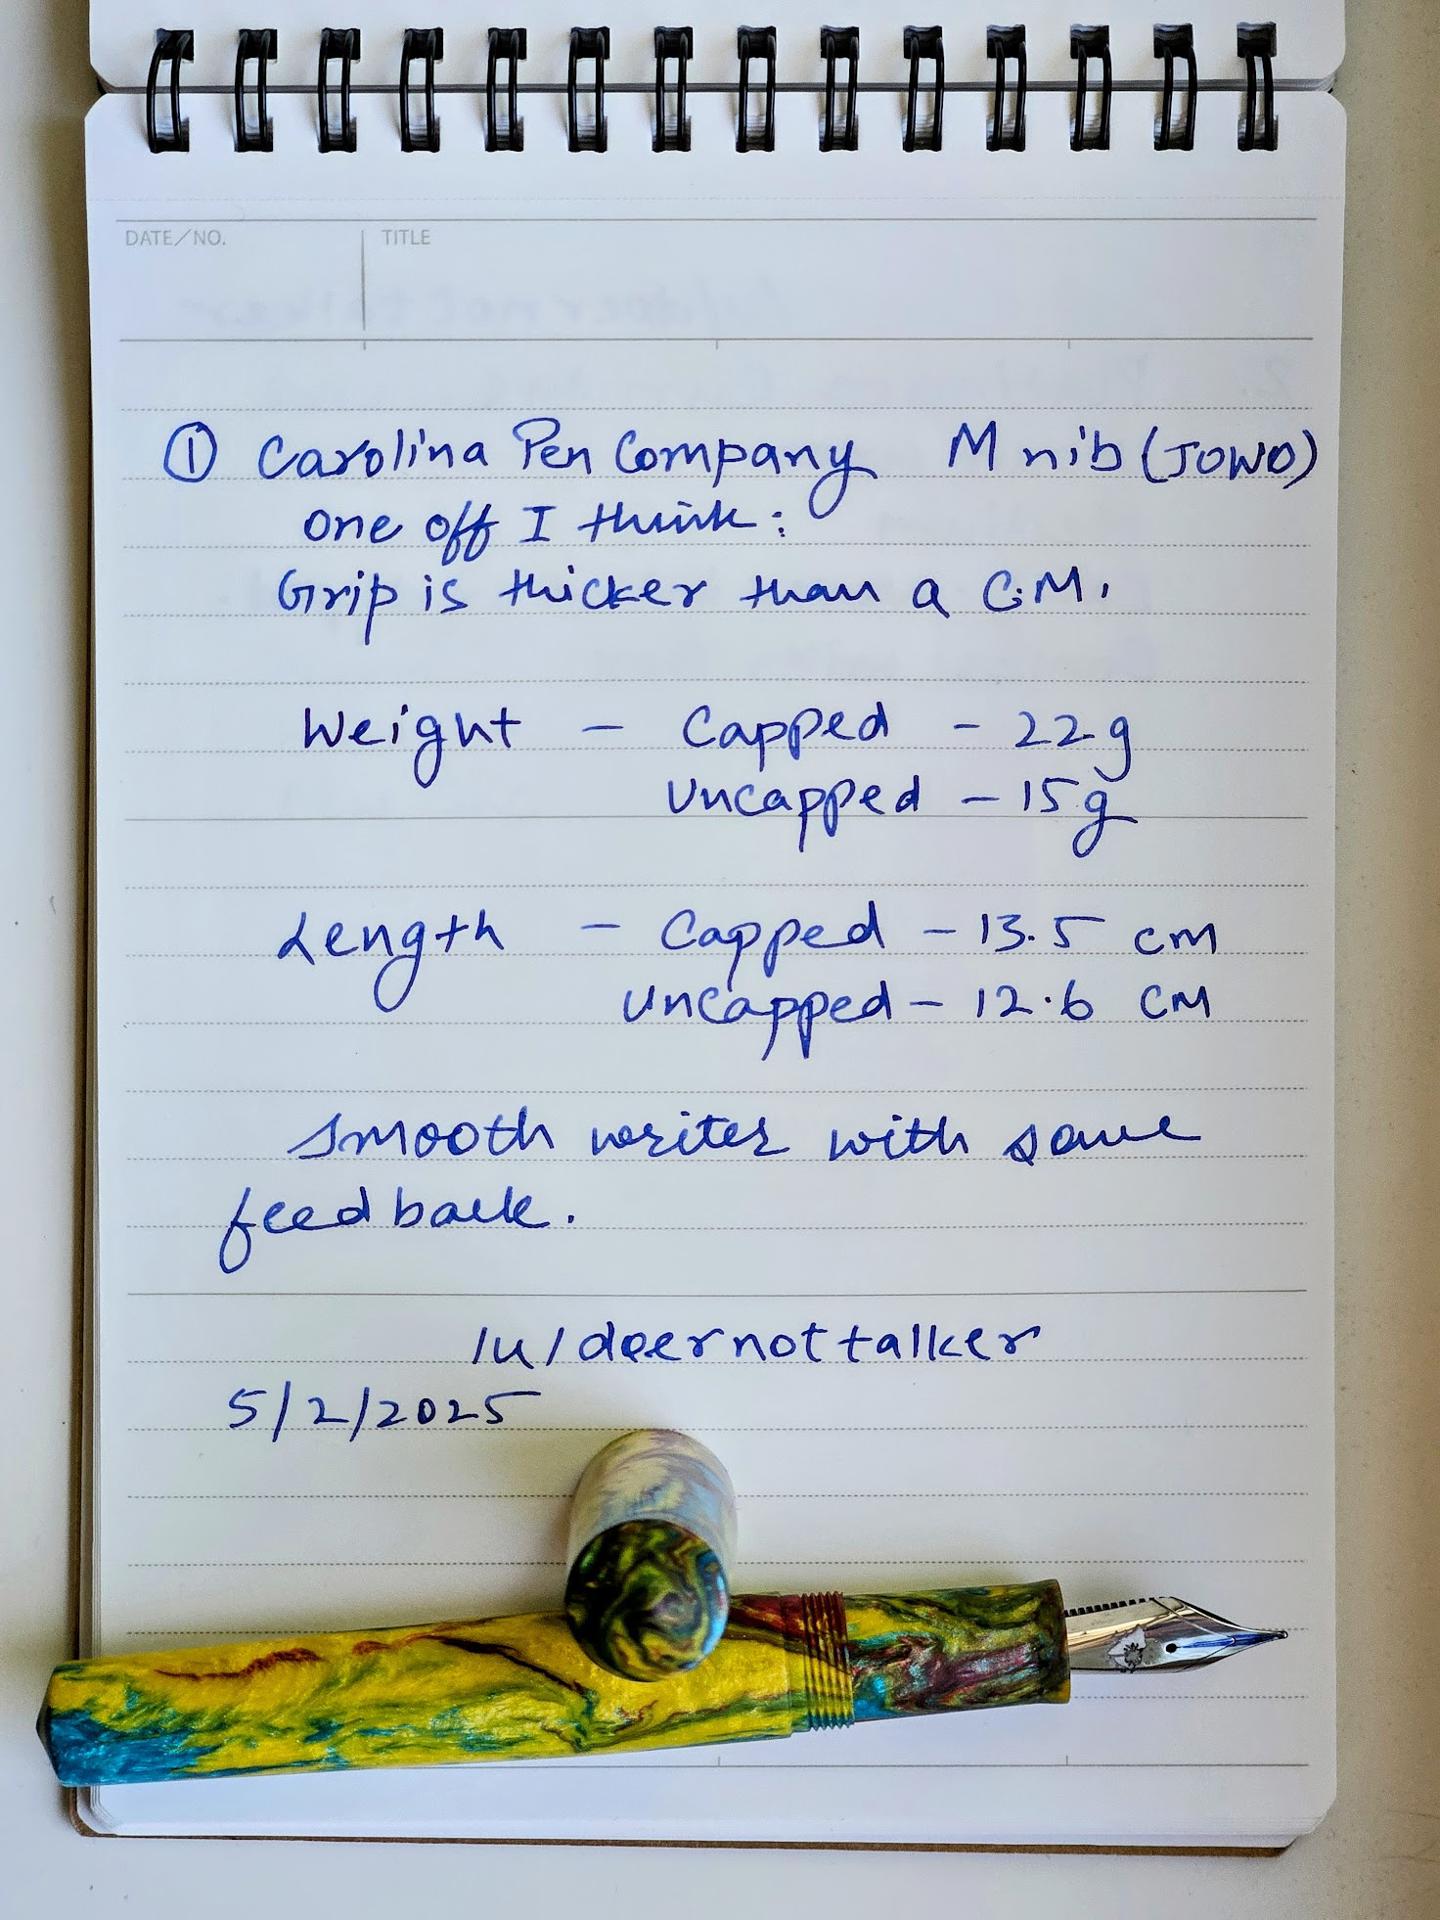 DATE/NO.
TITLE
① Carolina Pen Company M nib (JOWO)
One off I think:
Grip is thicker than a C.M.
Weight - Capped - 22g
Uncapped - 15g
Length - Capped - 13.5 cm
Uncapped - 12.6 cm
Smooth writer with some
feedback.
/u/doernottalker
5/2/2025